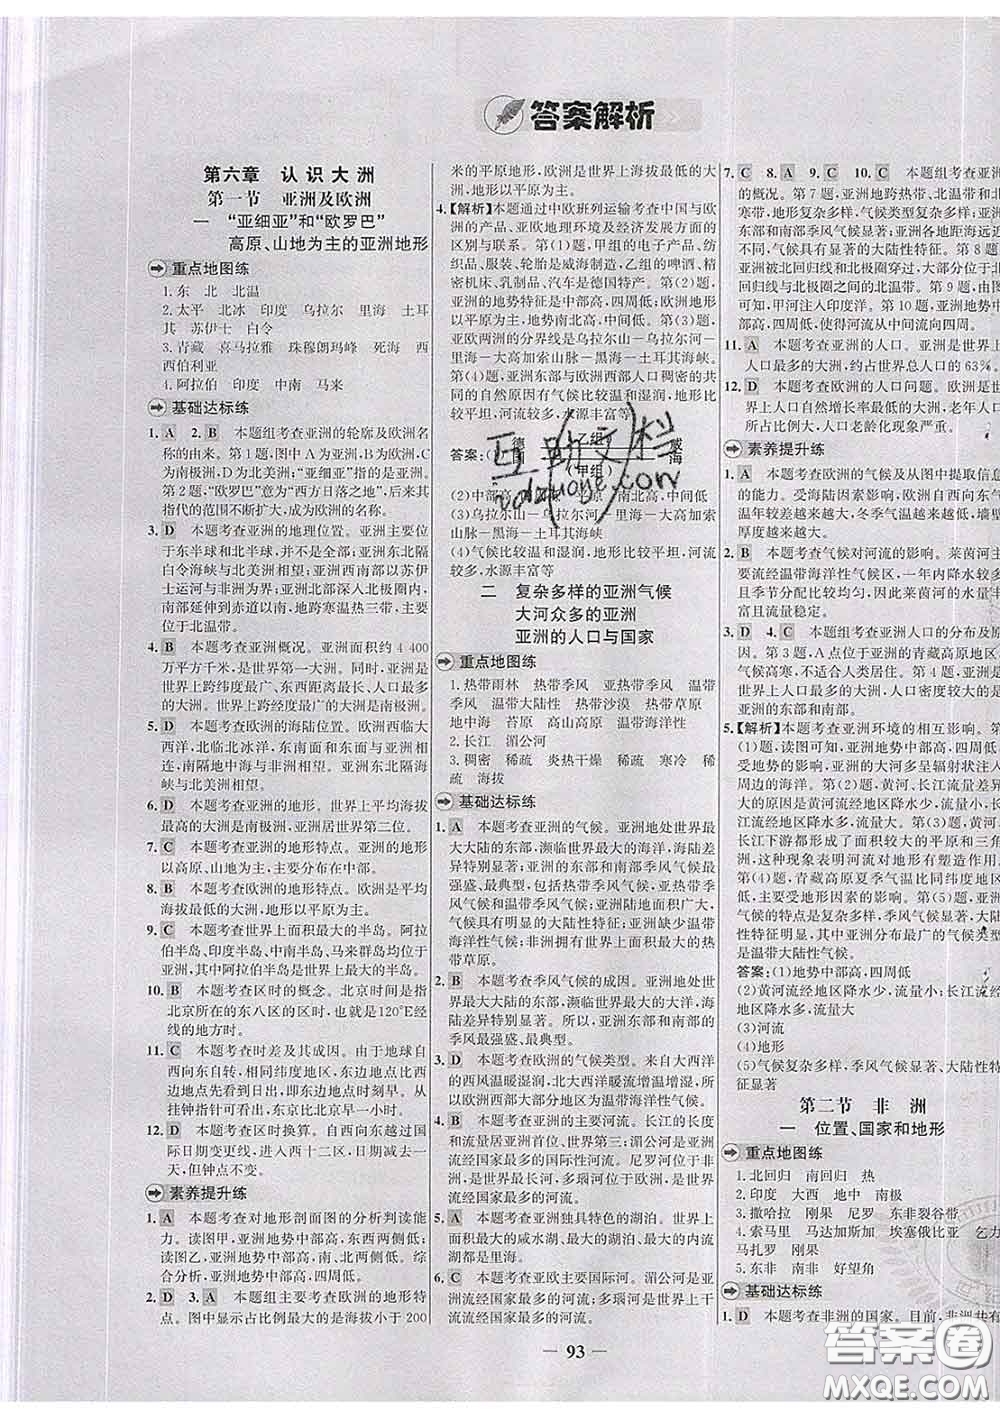 答案解析
第六章 认识大洲
第一节 亚洲及欧洲
一 “亚细亚”和“欧罗巴”
高原、山地为主的亚洲地形
重点地图练
1.东 北 北温
2.太平 北冰 印度 乌拉尔 里海 土耳
其 苏伊士 白令
3.青藏 喜马拉雅 珠穆朗玛峰 死海 西
西伯利亚
4.阿拉伯 印度 中南 马来
基础达标练
1. A 2. B 本题组考查亚洲的轮廓及欧洲名
称的由来。第1题,①是亚洲,②是欧洲,③
是非洲,④是北美洲;“亚细亚”指的是亚洲。
第2题,“欧罗巴”意为“西方日落之地”,后其指
代的范围不断扩大,成为欧洲的名称。
3. D 本题考查亚洲的地理位置。亚洲主要位
于东半球和北半球,并不是全部;亚洲东北隔
白令海峡与北美洲相望;亚洲西南部隔苏伊
士运河与非洲为界;亚洲北部深入北极圈内,
南部延伸到赤道以南,地跨寒温热三带,主要
位于北温带。
4. B 本题考查亚洲概况。亚洲面积约4 400
万平方千米,是世界第一大洲。同时,亚洲是
世界上跨纬度最广、东西距离最长、人口最多
的大洲。世界上跨经度最广的大洲是南极洲。
5. D 本题考查欧洲的海陆位置。欧洲西临大
西洋,北临北冰洋,东、东南与亚洲相连,南隔
地中海与非洲相望。亚洲东北隔白令海峡
与北美洲相望。
6. D 本题考查亚洲的地形。世界上平均海拔
最高的大洲是南极洲,亚洲居世界第二位。
7. C 本题考查亚洲的地形特点。亚洲以高原、
山地为主,主要分布在中部。
8. B 本题考查欧洲的地形特点。欧洲是平均
海拔最低的大洲,地形以平原为主。
9. C 本题考查世界上面积最大的半岛。阿拉
伯半岛、印度半岛、中南半岛、马来群岛都位
于亚洲,其中阿拉伯半岛是世界上最大的半岛。
10. B 本题考查区时的概念。北京时间是指北京
所在的东八区的区时,也就是120°E经
线的地方时。
11. C 本题考查时差及其成因。由于地球自
西向东自转,相同纬度地区,东边地点比西
边地点先看到日出,即东边地点时刻早。从
挂钟指针可以看出,东京比北京早1小时。
12. D 本题考查区时换算。自西向东越过
国际日期变更线,进入西十二区,日期减一
天,但钟点不变。
素养提升练
1. A 本题考查对地形剖面图的分析判读能
力。读图甲,亚洲地势中部高,东西两侧低;
读图乙,亚洲地势中部高,南、北两侧低。综
合分析,亚洲地势中部高、四周低。
2. D 3. A 本题组主要考查欧洲的地形特
点。图中显示占比例最大的是海拔小于200
米的平原地形,欧洲是世界上海拔最低的大洲,
地形以平原为主。
4.【解析】本题通过中欧班列运输考查中国与欧
洲的产品、亚欧地理环境及经济发展方面的
区别与联系。第(1)题,甲组的电子产品、纺
织品、服装、轮胎是威海制造,乙组的啤酒、精
密机床、乳制品、汽车是德国特产。第(2)题,
亚洲的地势特征是中部高,四周低,欧洲地形
以平原为主,地势南北高,中部低。第(3)题,
亚欧两洲的分界线为乌拉尔山—乌拉尔河—
里海—大高加索山脉—黑海—土耳其海峡。
第(4)题,亚洲东部与欧洲西部人口稠密的共
同的自然原因有气候比较温和湿润,地形比
较平坦,河流较多,水源丰富等。
答案:(1)
德国 乙组 威海
(甲组)
(2)中部高,四周低 平原 南北高,中间低
(3)乌拉尔山—乌拉尔河—里海—大高加索
山脉—黑海—土耳其海峡
(4)气候比较温和湿润,地形比较平坦,河流
较多,水源丰富等
二 复杂多样的亚洲气候
大河众多的亚洲
亚洲的人口与国家
重点地图练
1.热带雨林 热带季风 亚热带季风 温带
季风 温带大陆性 热带沙漠 热带草原
地中海 苔原 高山高原 温带海洋性
2.长江 湄公河
3.稠密 稀疏 炎热干燥 稀疏 寒冷 稀
疏 海拔
基础达标练
1. A 本题考查亚洲的气候。亚洲地处世界最
大大陆的东部,濒临世界最大的海洋,海陆差
异特别显著;亚洲的东部和南部季风气候最
强盛、最典型,包括热带季风气候、亚热带季
风气候、温带季风气候;亚洲陆地面积广大,
气候具有明显的大陆性特征;亚洲缺少温带
海洋性气候;非洲拥有世界上面积最大的热
带草原。
2. B 本题考查季风气候的成因。亚洲地处世
界最大大陆的东部,濒临世界最大的海洋,海
陆差异特别显著。所以,亚洲东部和南部的季
风最强盛、最典型。
3. D 本题考查欧洲的气候类型。来自大西洋
的西风温暖湿润,北大西洋暖流增温增湿,所
以欧洲西部大部分地区为温带海洋性气候。
4. B 本题考查世界主要河流。长江的长度和
流量居亚洲首位、世界第三;湄公河是亚洲流
经国家最多的国际性河流。尼罗河位于非洲,
是世界上最长的河流。多瑙河是世界上流经
国家最多的河流。
5. A 本题考查亚洲独具特色的湖泊。世界上
面积最大的咸水湖、最大的湖泊、最大的内流
湖都是里海。
6. C 本题考查亚欧主要国际河。湄公河是亚
洲流经国家最多的河流;多瑙河是世界上流
经国家最多的河流。
7. C 8. A 9. C 10. C 本题组考查亚洲
的概况。第7题,亚洲地跨热带、北温带和
带,地形复杂多样,气候类型复杂多样,
和东部季风气候显著;亚洲各地距海远近
不同,气候有显著的大陆性特征。第8题,
亚洲被北回归线和北极圈穿过,大部分在
回归线与北极圈之间的北温带。第9题,由图
可知,甲河注入印度洋。第10题,亚洲地势
部高,四周低,使得河流从中间流向四周。
11. A 本题考查亚洲的人口。亚洲是世界上
人口最多的大洲,约占世界总人口的63%。
12. D 本题考查欧洲的人口问题。欧洲是世
界上人口自然增长率最低的大洲,老年人口
人口老龄化现象严重。
素养提升练
1. A 本题考查欧洲的气候及从图中提取信息
的能力。受海陆因素影响,欧洲自西向东气
温年较差越来越大,冬季气温越来越低,墙壁
厚度越来越大。
2. B 本题考查气候对河流的影响。莱茵河
要流经温带海洋性气候区,一年内降水
和季节分配比较均匀,因此莱茵河的水量丰
富且流量稳定。
3. D 4. C 本题组考查亚洲人口的分布及原
因。第3题,A点位于亚洲的青藏高原地区,
气候高寒,不适合人类居住。第4题,亚洲
人口分布最稠密的地区是
亚洲的东部和南部。
5.【解析】本题考查亚洲环境的相互影响。第
(1)题,读图可知,亚洲地势中部高,四周低。
响下,亚洲的大河多呈辐射状流入
周边的海洋。第(2)题,黄河、长江流量差异
大的原因是黄河流经地区降水少,流量小,
长江流经地区降水多,流量大。第(3)题,黄河
长江下游都形成了面积较大的平原和三角
洲,这种现象表明河流对地形有塑造作用。
第(4)题,青藏高原夏季气温比同纬度地区
低,这是受地形的影响。第(5)题,亚洲
气候的特点是复杂多样、季风气候显著、大陆性
特征明显,其中亚洲分布最广的气候类型
是温带大陆性气候。
答案:(1)地势中部高,四周低
(2)黄河流经地区降水少,流量小,长江流经
地区降水多,流量大
(3)河流
(4)地形
(5)气候复杂多样、季风气候显著、大陆性特
征显著
第二节 非洲
一 位置、国家和地形
重点地图练
1.北回归 南回归 热
2.印度 大西 地中 南极
3.撒哈拉 刚果 尼罗 东非裂谷带
4.索马里 马达加斯加 埃塞俄比亚 乞力
马扎罗 刚果
5.东非 南非 好望角
基础达标练
1. D 本题考查非洲的国家。目前,非洲共有
— 93 —
互助文档
vdzuoye.com
答案圈
MXQE.COM